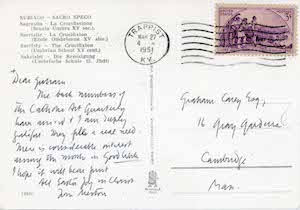 SUBIACO - SACRO SPECO
Sagrestia - La Crocifissione
(Scuola Umbra XV sec.)
Sacristie - La Crucifixion
(Ecole Ombrienne XV siècle)
Sacristy - The Crucifixion
(Umbrian School XV cent.)
Sakristei - Die Kreuzigung
TRAPPIST
MAR 27
4
1951
KY.
3¢
Dear Graham
The back numbers of
the Catholic Art Quarterly
have arrived & I am deeply
grateful. They fill a real need.
There is considerable interest
among the monks in Good Work.
I hope it will bear fruit
All Easter joy in Christ
Graham Carey Esq.
16 Gray Gardens
Cambridge
Mass.